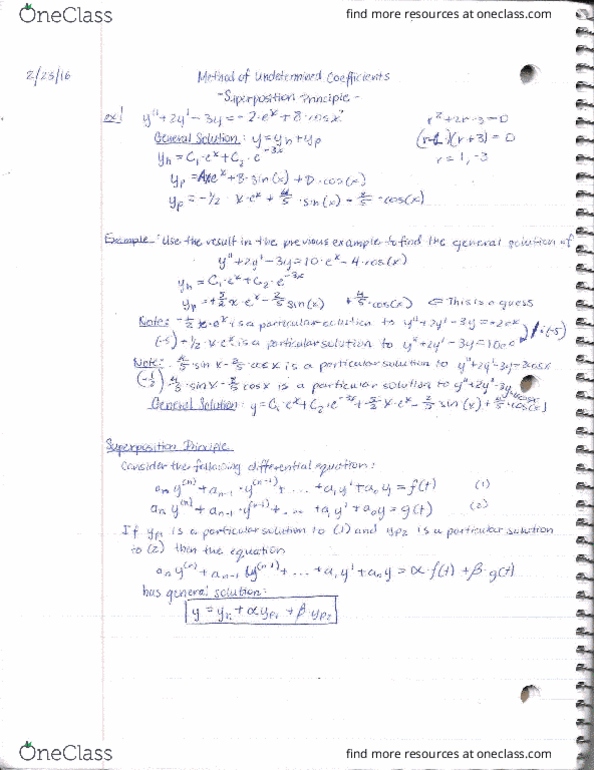 OneClass
find more resources at oneclass.com
2/23/16
Method of Undetermined Coefficients
- Superposition Principle -
ex! y'' + 2y' - 3y = -2·e^x + 8·cosx
r² + 2r - 3 = 0
General Solution: y = yh + yp
(r-1)(r+3) = 0
yh = C₁·e^x + C₂·e^-3x
r = 1, -3
yp = Axe^x + B·sin(x) + D·cos(x)
yp = -1/2 x·e^x + 4/5 ·sin(x) - 8/5 ·cos(x)
Example: Use the result in the previous example to find the general solution of
y'' + 2y' - 3y = 10·e^x - 4·cos(x)
yh = C₁·e^x + C₂·e^-3x
yp = +5/2 x·e^x - 2/5 sin(x) + 4/5 cos(x) ⇐ This is a guess
Note: -1/2 x·e^x is a particular solution to y'' + 2y' - 3y = -2e^x
(-5) is a particular solution to y'' + 2y' - 3y = 10e ·(-5)
Note: 4/5 sin x - 8/5 cos x is a particular solution to y'' + 2y' - 3y =
(-1/2) 4/5 ·sin x - 8/5 cos x is a particular solution to y'' + 2y' - 3y
General Solution: y = C₁·e^x + C₂·e^-3x + 5/2 x·e^x - 2/5 sin(x) + 4/5 cos(x)
Superposition Principle
Consider the following differential equation:
an y^(n) + an-1·y^(n-1) + ... + a₁y' + a₀y = f(t) (1)
an y^(n) + an-1·y^(n-1) + ... + a₁y' + a₀y = g(t) (2)
If yp1 is a particular solution to (1) and yp2 is a particular solution
to (2) then the equation
an y^(n) + an-1 y^(n-1) + ... + a₁y' + any = α·f(t) + β·g(t)
has general solution:
y = yh + αyp1 + β·yp2
OneClass
find more resources at oneclass.com